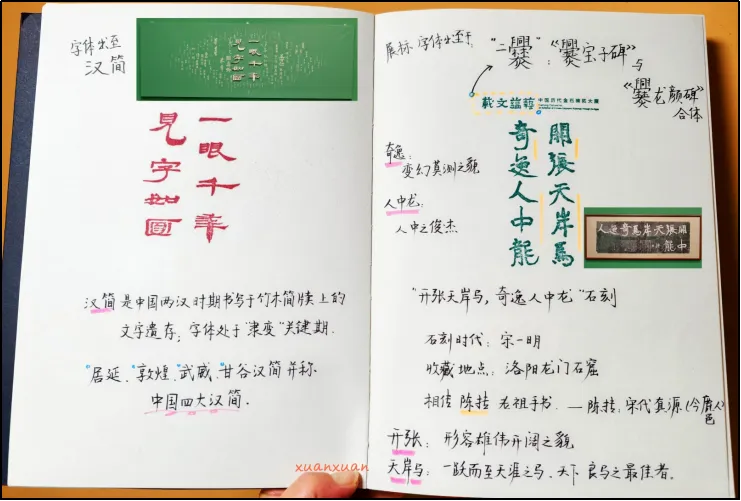 字体出至
汉简
一眼千年
見字如面
汉简是中国两汉时期书写于竹木简牍上的
文字遗存;字体处于"隶变"关键期.
"居延、敦煌、武威、甘谷汉简并称
中国四大汉简.
xuanxuan
展标字体出至于"二爨":《爨宝子碑》
与
《爨龙颜碑》
合体
载文蕴韬
開張天岸馬
奇逸人中龍
奇逸:
变幻莫测之貌
人中龙:
人中之俊杰
"开张天岸马,奇逸人中龙"石刻
石刻时代:宋—明
收藏地点:洛阳龙门石窟
相传 陈抟老祖手书. —陈抟,宋代真源(今鹿
邑人)
开张:形容雄伟开阔之貌
天岸马:一跃而至天涯之马,天下良马之最佳者.